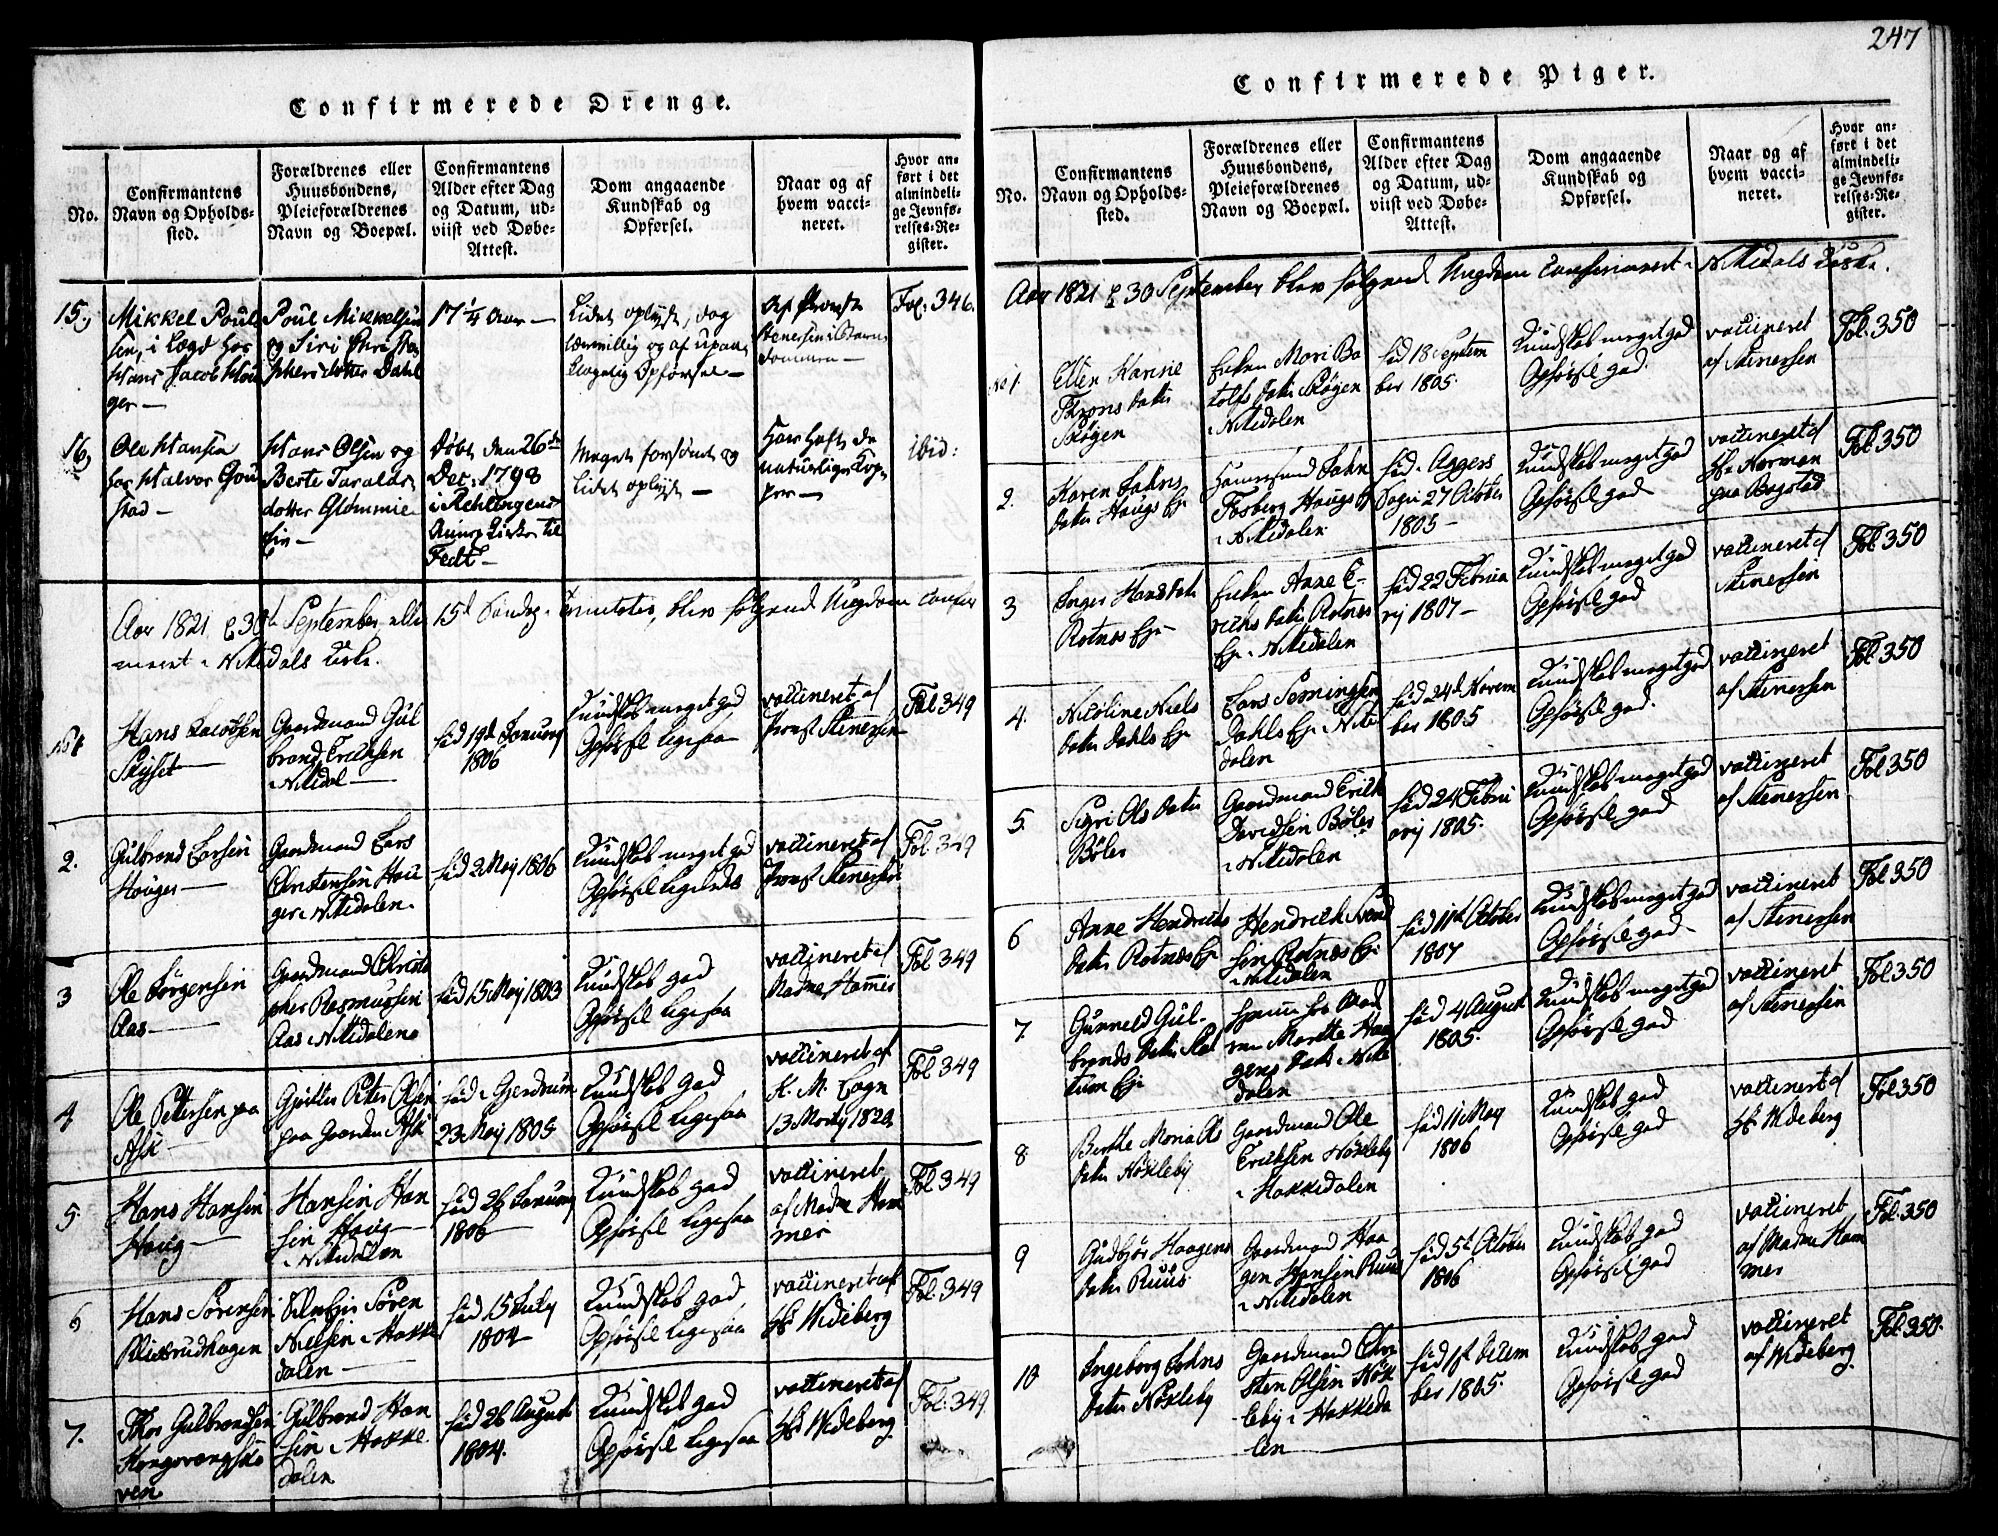 247
Confirmerede Drenge.
No.
Confirmantens
Navn og Opholds-
sted.
Forældrenes eller
Huusbondens,
Pleieforældrenes
Navn og Boepæl.
Confirmantens
Alder efter Dag
og Datum, ud-
viist ved Døbe-
Attest.
Dom angaaende
Kundskab og
Opførsel.
Naar og af
hvem vacci-
neret.
Hvor an-
ført i det
almindeli-
ge Jevnfø-
relses-Re-
gister.
15,
Mikkel Pouls
sen, i Lægd hos
Hans Jacob Hou
ger
Poul Mikkelsen
og Siri Christo
phersdotter Dahl
17 1/4 Aar
Lidet oplyst, dog
og af upaa
klagelig Opførsel
Af Provst
Stenersen i Barn
dommen
Fol: 346.
16,
Ole Hansen
hos Halvor
stad
Hans Olsen og
Berte Taralds
dotter Glømmie
Eie
Døbt den 26de
Dec. 1798
i
Kirke til
Fedt
Meget forsømt og
Lidet oplyst
Har haft de
naturlige Kop
per
ibid:
Aar 1821 30t September eller 15d Søndag Trinitatis, blev følgende Ungdom Confir
meret i Nittedals Kirke.
No 1
Hans Jacobsen
Skyset
Gaardmand Gul
brand Ericksen
Nittedal
fød 19d Januarj
1806
Kundskab meget god
Opførsel ligesaa
vaccineret af
Provst Stenersen
Fol 349
2.
Gulbrand Larsen
Houger
Gaardmand Lars
Christensen Hou
ger i Nittedalen
fød 2 Maj 1806
Kundskab meget god
Opførsel ligeledes
vaccineret af
Provst Stenersen
Fol. 349
3
Ole Jørgensen
Aas
Gaardmand Christo
pher Rasmussen
Aas i Nittedalen
fød 15 Maj 1803
Kundskab god
Opførsel ligesaa
vaccineret af
Madme Hammer
Fol 349
4
Ole Pettersen paa
Ask
Gjetter Peter Olsen
paa Gaarden Ask
fød i Gjerdrum
23 Maj 1805
Kundskab god
Opførsel ligesaa
vaccineret af
K. M. Lagn
13 Martj 1820
Fol 349
5.
Hans Hansen
Houg
Hansen Han
sen Houg
i Nittedalen
fød 26 Januarj
1806
Kundskab god
Opførsel ligesaa
vaccineret
af Madme Ham
mer
Fol 349
6
Hans Sørensen
Sølvejer Søren
Nielsen i Hakke
dalen
fød 15 July
1804
Kundskab god
Opførsel ligesaa
vaccineret af
Hr Wideberg
Fol. 349
7.
Thor Gulbrandsen
Kongsvangsko
ven
Gulbrand Han
sen i Hakke
dalen
fød 26 August
1804.
Kundskab god
Opførsel ligesaa
vaccineret af
Hr Wideberg
Fol: 349
Confirmerede Piger.
No.
Confirmantens
Navn og Opholds-
sted.
Forældrenes eller
Huusbondens,
Pleieforældrenes
Navn og Boepæl.
Confirmantens
Alder efter Dag
og Datum, ud-
viist ved Døbe-
Attest.
Dom angaaende
Kundskab og
Opførsel.
Naar og af
hvem vacci-
neret.
Hvor an-
ført i det
almindeli-
ge Jevnfø-
relses-Re-
gister.
Aar 1821 30 September blev følgende Ungdom Confirmeret i Nittedals Kirke.
No 1
Ellen Karine
Throns dater
Skøgen
Enken Mari Bo
tolfs dater Skøgen
Nittedalen
fød 18 Septem
ber 1805.
Kundskab meget god
Opførsel god
vaccineret
af Stenersen
Fol. 350
2.
Karen Jahns
dater Hougs Eje
Huusmand Jahn
Fosberg Hougs Ej
i Nittedalen
fød i Aggers
Sogn 27 October
1805
Kundskab meget god
Opførsel god
vaccineret af
Hr Norman
paa Bogstad
Fol 350
3
Inger Hansdater
Rotnes Eje
Enken Anne E-
richs dater Rotnes
Eje i Nittedalen
fød 22 Februa
rj 1807
Kundskab meget god
Opførsel god
vaccineret af
Stenersen
Fol 350
4.
Nicoline Niels
dater Dahls Eje
Lars Semingsen
Dahls Eje i Nitte
dalen
fød 24d Novem
ber 1805
Kundskab meget god
Opførsel god.
vaccineret
af Stenersen
Fol. 350
5.
Sigri Ols dater
Bøler
Gaardmand Erick
Davidsen Bøler
i Nittedalen
fød 24 Febru
arj 1805.
Kundskab meget god
Opførsel god
vaccineret
af Stenersen
Fol 350
6
Anne Hendricks
dater Rotnes Eje
Hendrich Svend
sen Rotnes Eje
i Nittedalen
fød 11t October
1807
Kundskab meget god
Opførsel god
vaccineret
af Stenersen
Fol 350
7.
Gunneld Gul-
brands dater Slat
tum Eje
Marthe Haa
gens dater i Nitte
dalen
fød 4 August
1805.
Kundskab meget god
Opførsel god
vaccineret
af Stenersen
Fol 350
8.
Berthe Maria Ols
dater Nøkleby
Gaardmand Ole
Ericksen Nøkleby
i Hakkedalen
fød 11 Maj
1806
Kundskab god
Opførsel god
vaccineret af
Hr Wideberg
Fol 350
9
Gudbjør Haagens
dater Ruus
Gaardmand Haa
gen Hansen Ruus
i Nittedalen
fød 5t October
1806
Kundskab god
Opførsel god
vaccineret
af Madme Ham
mer
Fol. 350
10
Ingeborg Johns
dater Nøkleby
Gaardmand Chri
sten Olsen Nøk
leby i Hakkeda
len
fød 1st Decem
ber 1805.
Kundskab god
Opførsel god
vaccineret
af Wideberg
Fol. 350.